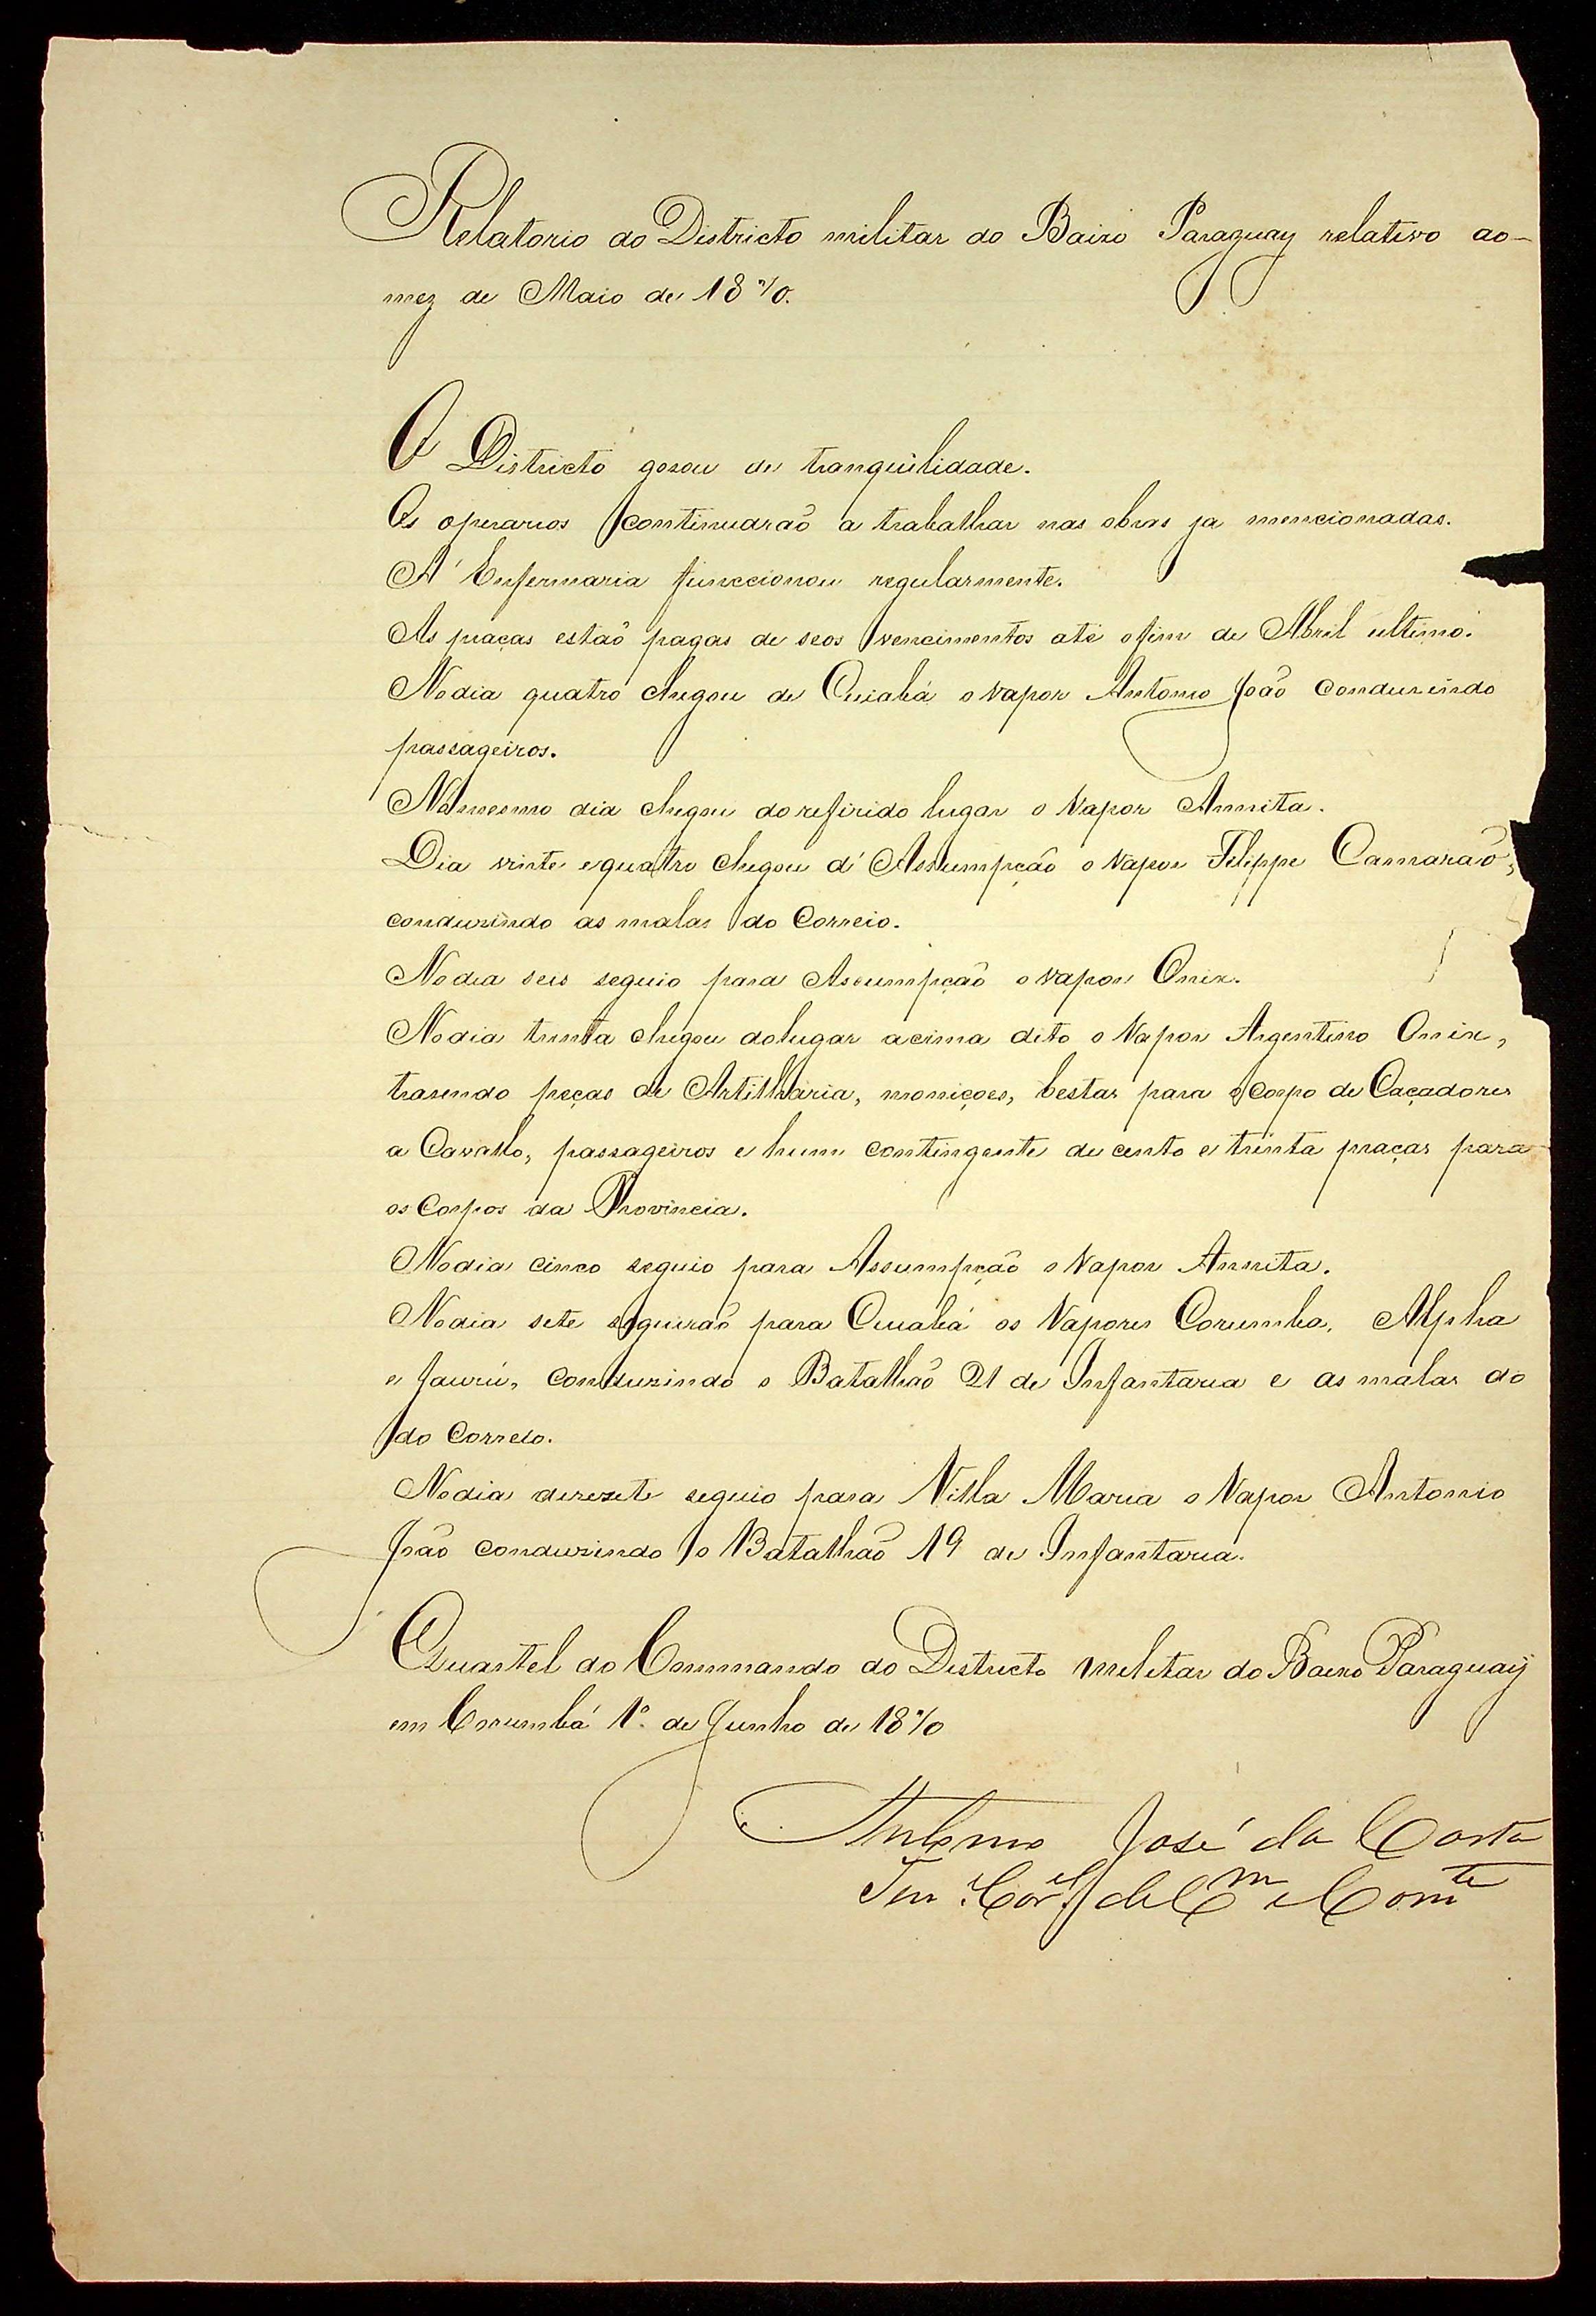 Relatorio do Districto militar do Baixo Paraguay relativo ao
mez de Maio de 1870.
O Districto gosou de tranquilidade.
Os operarios continuarão a trabalhar nas obras ja mencionadas.
A Enfermaria funccionou regularmente.
As praças estão pagas de seos vencimentos até o fim de Abril ultimo.
No dia quatro chegou de Cuiabá o vapor Antonio João condusindo
passageiros.
No mesmo dia chegou do referido lugar o Vapor Annita.
Dia vinte e quatro chegou d'Assumpção o Vapor Felippe Camarão,
condusindo as malas do Correio.
No dia seis seguio para Assumpção o vapor Onix.
No dia trinta chegou do lugar acima dito o Vapor Argentino Onix,
trasendo peças de Artilharia, moniçoes, bestas para o Corpo de Caçadores
a Cavallo, passageiros e hum contingente de cento e trinta praças para
os Corpos da Provincia.
No dia cinco seguio para Assumpção o Vapor Annita.
No dia sete seguirão para Cuiabá os Vapores Corumba, Alpha
e Jaurú, condusindo o Batalhão 21 de Infantaria e as malas do
do Correio.
No dia desesete seguio para Villa Maria o Vapor Antonio
João condusindo o Batalhão 19 de Infantaria.
Quartel do Commando do Districto militar do Baixo Paraguay
em Corumbá 1º de Junho de 1870
Antonio José da Costa
Ten Corel de Cm e Comte